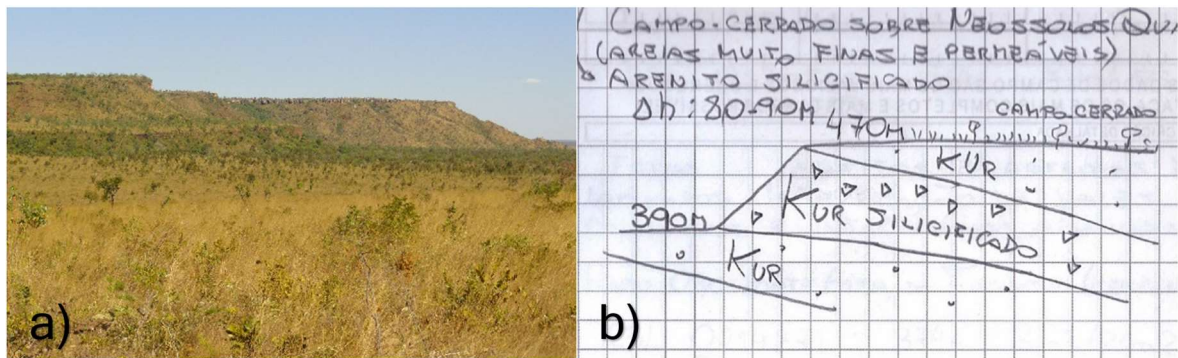 a)
CAMPO-CERRADO SOBRE NEOSSOLOS (QU
(AREIAS MUITO FINAS E PERMEÁVEIS)
ARENITO SILICIFICADO
Δh: 80-90M
470M
CAMPO CERRADO
KUR
KUR SILICIFICADO
390M
KUR
b)